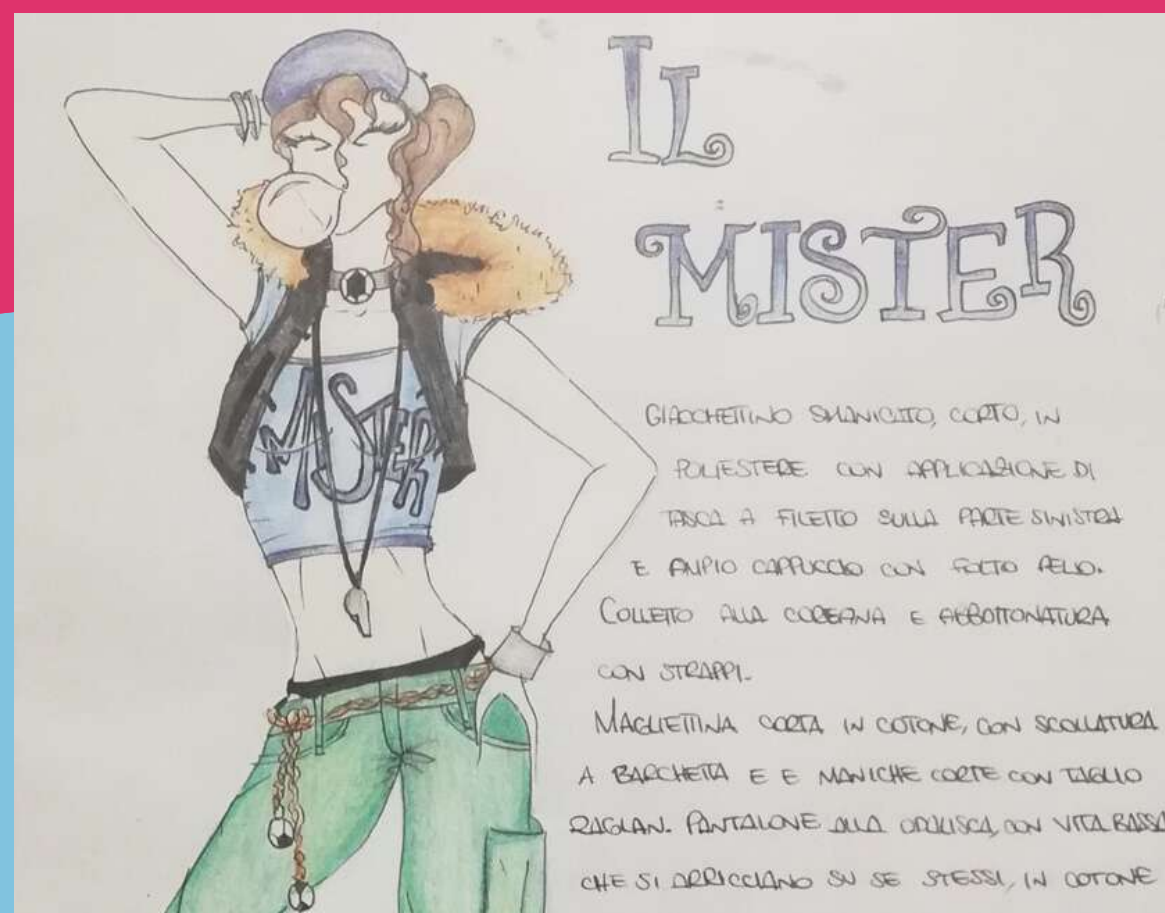 IL
MISTER
MISTER
GIACCHETTINO SMANICATO, CORTO, IN
POLIESTERE CON APPLICAZIONE DI
TASCA A FILETTO SULLA PARTE SINISTRA
E AMPIO CAPPUCCIO CON FOLTO PELO.
COLLETTO ALLA COREANA E ABBOTTONATURA
CON STRAPPI.
MAGLIETTINA CORTA IN COTONE, CON SCOLLATURA
A BARCHETTA E E MANICHE CORTE CON TAGLIO
RAGLAN. PANTALONE ALLA ODALISCA, CON VITA BASSA
CHE SI ARRICCIANO SU SE STESSI, IN COTONE